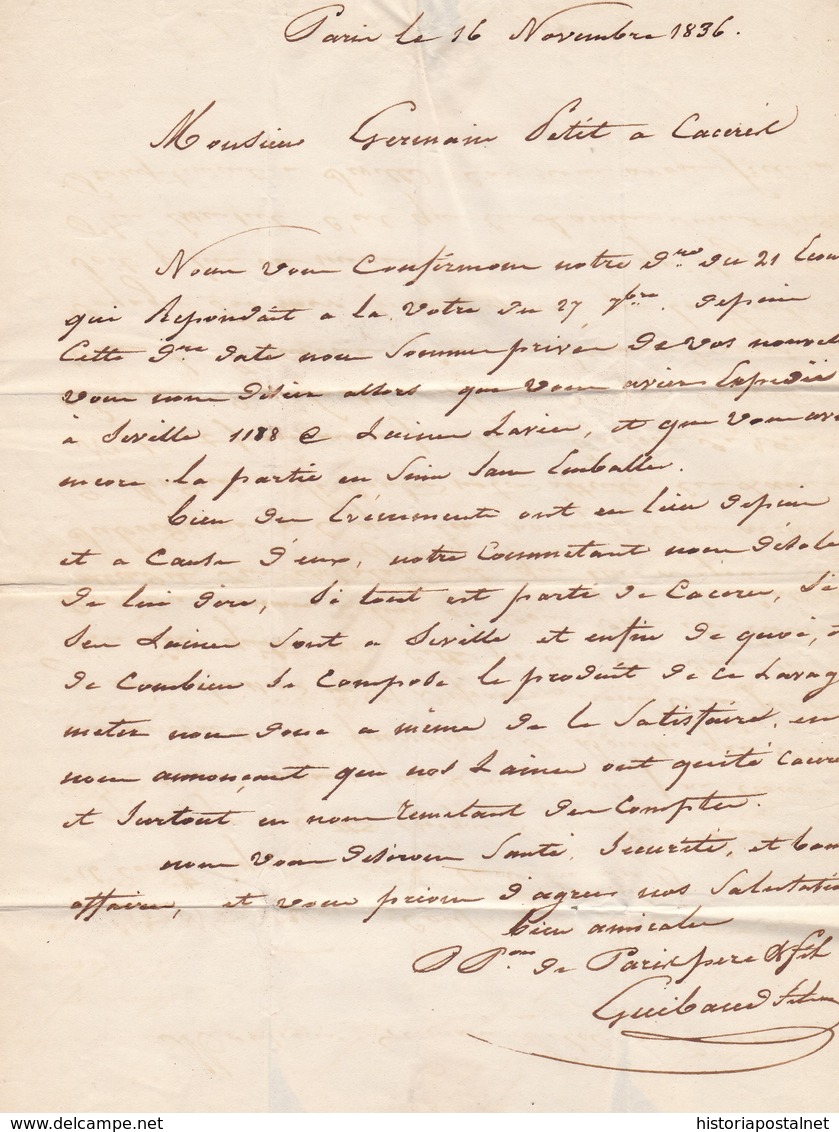 Paris le 16 Novembre 1836.
Monsieur Germain Petit a Cacerès
Nous vous Confirmons notre dre du 21 Ecou
qui Repondait a la Votre du 27 7bre. depuis
Cette dre date nous Sommes privés de vos nouvel
vous nous disiez allors que vous aviez Expedié
à Seville 1188 @ Laines Lavées, et que vous ave
encore la partie en Suin Sans Emballer.
bien des Evénements ont eu lieu depuis
et a Cause d'eux, notre Commetant nous désole
de lui dire, Si tout est parti de Caceres, Si
Ses Laines sont a Seville et enfin de quoi,
de Combien Se Compose le produit de ce Lavag
metez nous donc a même de le Satisfaire, en
nous annonçant que nos Laines ont quité Cacere
et Surtout en nous Remetant des Comptes.
nous vous désirons Santé, Securité, et bonnes
affaires, et vous prions d'agreer nos Salutatio
bien amicales
P Pon de Paris pere & fils
Guibaud
historiapostalnet